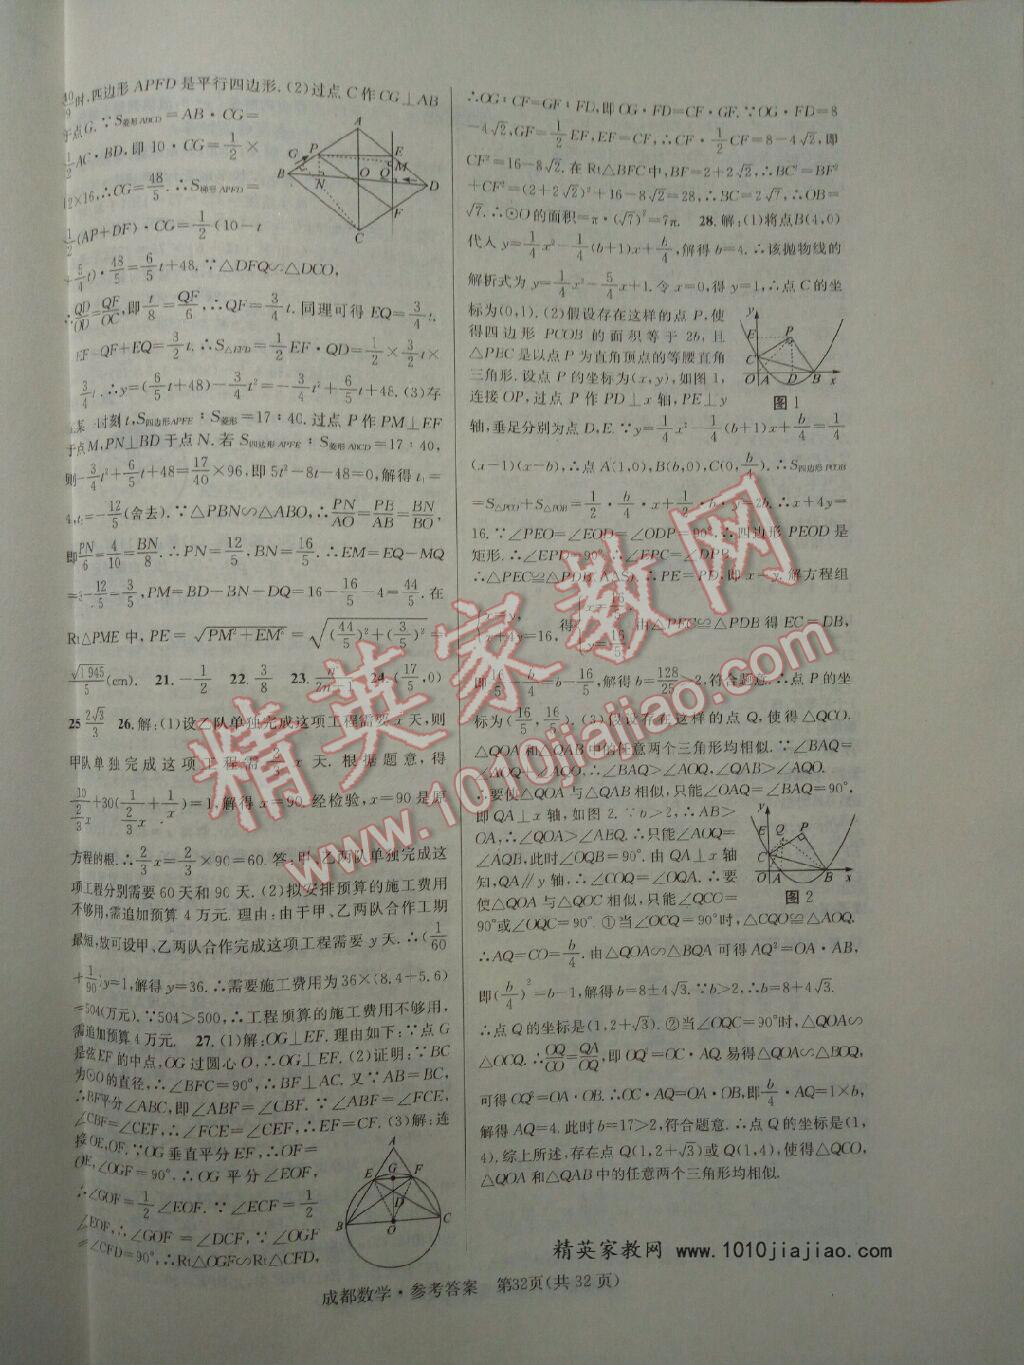 时,四边形 APFD 是平行四边形.(2)过点 C 作 CG⊥AB
于点G.∵S菱形ABCD=AB·CG=
1/2 AC·BD,即 10·CG=1/2×
12×16,∴CG=48/5.∴S梯形APFD=
1/2(AP+DF)·CG=1/2(10-t
+5/4 t)·48/5=6/5 t+48.∵△DFQ∽△DCO,
∴QD/OD=QF/OC,即 t/8=QF/6,∴QF=3/4 t.同理可得 EQ=3/4 t.
EF=QF+EQ=3/2 t.∴S△EFD=1/2 EF·QD=1/2×3/2 t×
∴y=(6/5 t+48)-3/4 t²=-3/4 t²+6/5 t+48.(3)存
某一时刻 t,S四边形APFE∶S菱形=17∶40.过点 P 作 PM⊥EF
于点M,PN⊥BD于点 N.若 S四边形APFE∶S菱形ABCD=17∶40,
则-3/4 t²+6/5 t+48=17/40×96,即 5t²-8t-48=0,解得 t₁=
4,t₂=-12/5(舍去).∵△PBN∽△ABO,∴PN/AO=PB/AB=BN/BO,
即PN/6=4/10=BN/8.∴PN=12/5,BN=16/5.∴EM=EQ-MQ
=3-12/5=3/5,PM=BD-BN-DQ=16-16/5-4=44/5.在
Rt△PME 中,PE=√(PM²+EM²)=√((44/5)²+(3/5)²)=
√1945/5(cm). 21.-1/2 22.3/8 23. 24.(17/5,0)
25.2√3/3 26.解:(1)设乙队单独完成这项工程需要 x 天,则
甲队单独完成这项工程需 2/3 x 天.根据题意,得
10/(2/3 x)+30(1/(2/3 x)+1/x)=1,解得 x=90.经检验,x=90 是原
方程的根.∴2/3 x=2/3×90=60.答:甲、乙两队单独完成这
项工程分别需要 60 天和 90 天.(2)拟安排预算的施工费用
不够用,需追加预算 4 万元.理由:由于甲、乙两队合作工期
最短,故可设甲、乙两队合作完成这项工程需要 y 天.∴(1/60
+1/90)y=1,解得 y=36.∴需要施工费用为 36×(8.4+5.6)
=504(万元).∵504>500,∴工程预算的施工费用不够用,
需追加预算 4 万元. 27.(1)解:OG⊥EF.理由如下:∵点 G
是弦EF 的中点,OG 过圆心 O,∴OG⊥EF.(2)证明:∵BC
为⊙O 的直径,∴∠BFC=90°,∴BF⊥AC.又∵AB=BC,
∴BF平分∠ABC,即∠ABF=∠CBF.∵∠ABF=∠FCE,
∠CBF=∠CEF,∴∠FCE=∠CEF,∴EF=CF.(3)解:连
接OE,OF.∵OG 垂直平分 EF,∴OF=
OE,∠OGF=90°.∴OG 平分∠EOF,
∴∠GOF=1/2∠EOF.∵∠ECF=1/2
∠EOF,∴∠GOF=∠DCF,∵∠OGF
=∠CFD=90°,∴Rt△OGF∽Rt△CFD,
∴OG∶CF=GF∶FD,即 OG·FD=CF·GF.∵OG·FD=8
-4√2,GF=1/2 EF,EF=CF,∴CF·1/2 CF=8-4√2,即
CF²=16-8√2.在 Rt△BFC 中,BF=2+2√2,∴BC²=BF²
+CF²=(2+2√2)²+16-8√2=28,∴BC=2√7,∴OB=
√7.∴⊙O 的面积=π·(√7)²=7π. 28.解:(1)将点B(4,0)
代入 y=1/4 x²-1/4(b+1)x+b/4,解得 b=4.∴该抛物线的
解析式为 y=1/4 x²-5/4 x+1.令 x=0,得 y=1,∴点 C 的坐
标为(0,1).(2)假设存在这样的点 P,使
得四边形 PCOB 的面积等于 2b,且
△PEC 是以点 P 为直角顶点的等腰直角
三角形.设点 P 的坐标为(x,y),如图 1,
连接 OP,过点 P 作 PD⊥x 轴,PE⊥y
轴,垂足分别为点 D,E.∵y=1/4 x²-1/4(b+1)x+b/4=1/4
(x-1)(x-b),∴点 A(1,0),B(b,0),C(0,b/4).∴S四边形PCOB
=S△PCO+S△POB=1/2·b/4·x+1/2·b·y=2b.∴x+4y=
16.∵∠PEO=∠EOD=∠ODP=90°,∴四边形 PEOD 是
矩形.∴∠EPD=90°.∴∠EPC=∠DPB.
∴△PEC≌△PDB(AAS).∴PE=PD,即 x=y.解方程组
{x=y, x+4y=16, 得{x=16/5, y=16/5. 由△PEC≌△PDB 得 EC=DB,
即 16/5-b/4=b-16/5,解得 b=128/25>2.符合题意.∴点 P 的坐
标为(16/5,16/5).(3)假设存在这样的点 Q,使得△QCO,
△QOA 和△QAB 中的任意两个三角形均相似.∵∠BAQ=
∠AOQ+∠AQO.∴∠BAQ>∠AOQ,∠QAB>∠AQO.
∴要使△QOA 与△QAB 相似,只能∠OAQ=∠BAQ=90°,
即 QA⊥x 轴,如图 2.∵b>2,∴AB>
OA,∴∠QOA>∠ABQ.∴只能∠AOQ=
∠AQB,此时∠OQB=90°.由 QA⊥x 轴
知,QA∥y 轴.∴∠COQ=∠OQA.∴要
使△QOA 与△QOC 相似,只能∠QCO=
90°或∠OQC=90°.①当∠OCQ=90°时,△CQO≌△AOQ.
∴AQ=CO=b/4.由△QOA∽△BQA 可得 AQ²=OA·AB,
即(b/4)²=b-1,解得 b=8±4√3.∵b>2,∴b=8+4√3.
∴点 Q 的坐标是(1,2+√3).②当∠OQC=90°时,△QOA∽
△OCQ.∴OQ/CO=QA/OQ,即 OQ²=OC·AQ.易得△QOA∽△BOQ,
可得 OQ²=OA·OB.∴OC·AQ=OA·OB,即b/4·AQ=1×b,
解得 AQ=4.此时 b=17>2,符合题意.∴点 Q 的坐标是(1,
4).综上所述,存在点 Q(1,2+√3)或 Q(1,4),使得△QCO,
△QOA 和△QAB 中的任意两个三角形均相似.
图 1
图 2
精英家教网
www.1010jiajiao.com
精英家教网 www.1010jiajiao.com
成都数学·参考答案 第32页(共 32 页)